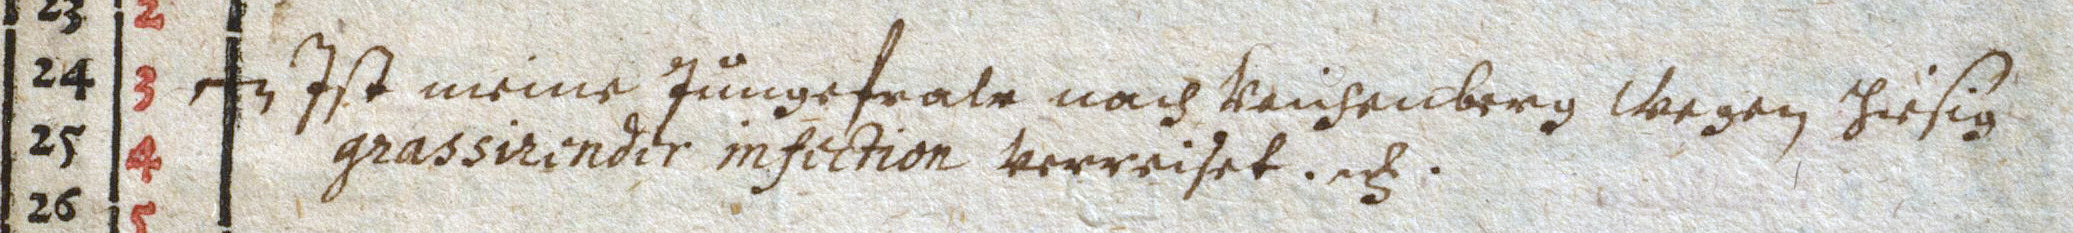 23 2
24 3 Ist meine Jungefraw nach Reichenberg wegen hiesig
25 4 grassirender infection verreiset. ꝛc.
26 5